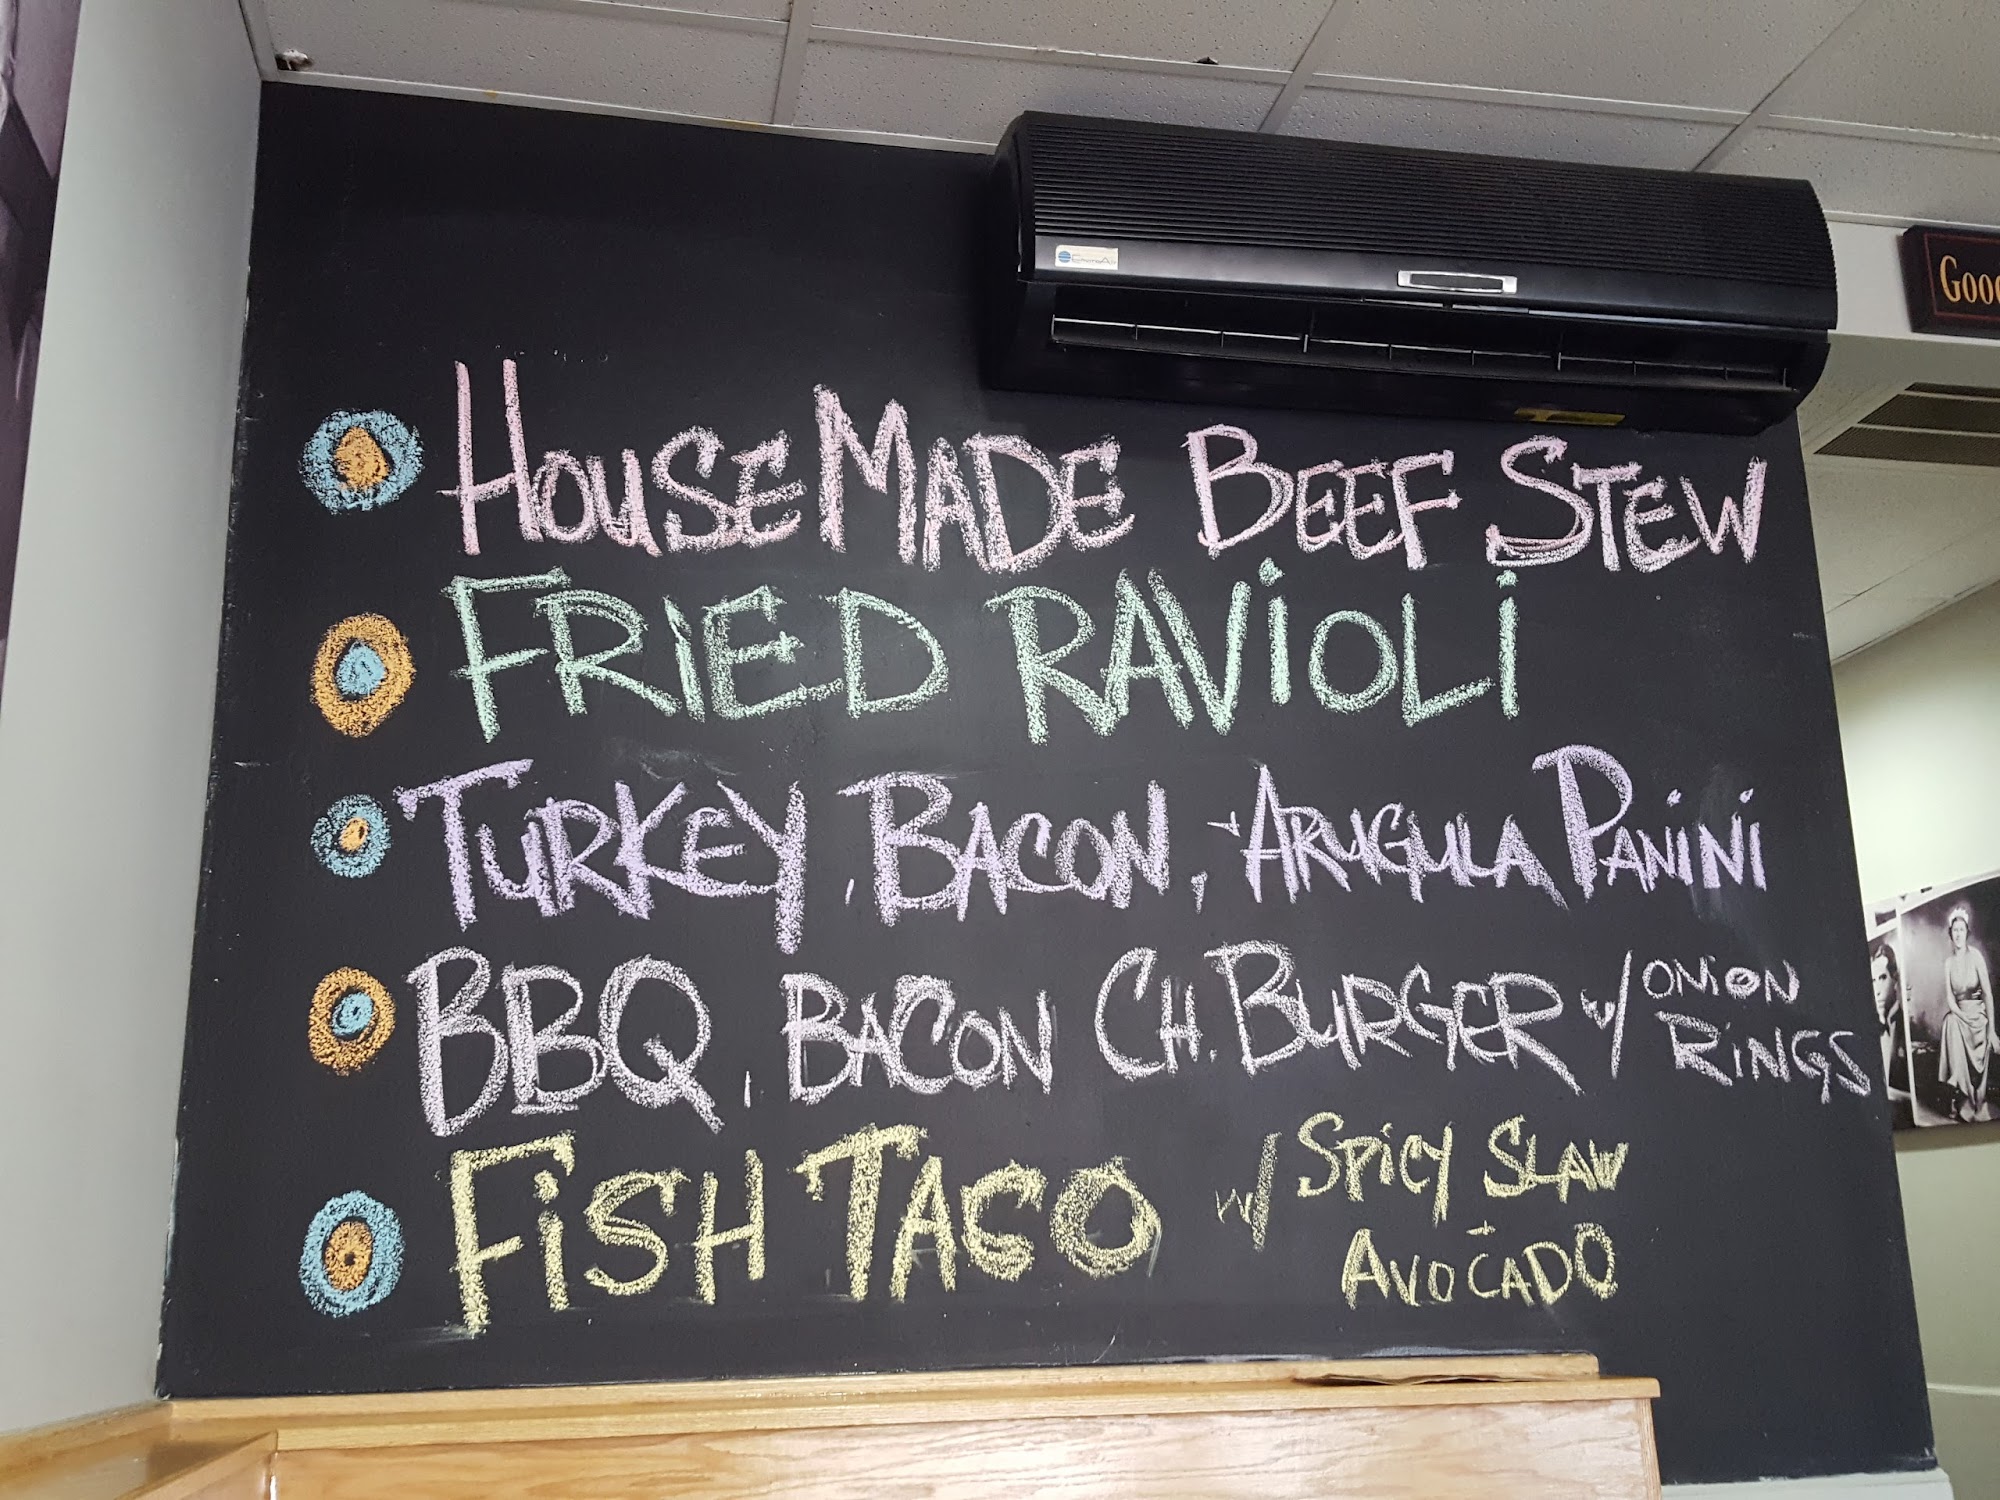 GOOD
HOUSEMADE BEEF STEW
FRIED RAViOLi
TURKEY, BACON, + ARUGULA PANiNi
BBQ, BACON CH. BURGER w/ ONiON RiNGS
FiSH TACO w/ SPiCY SLAW + AVOCADO